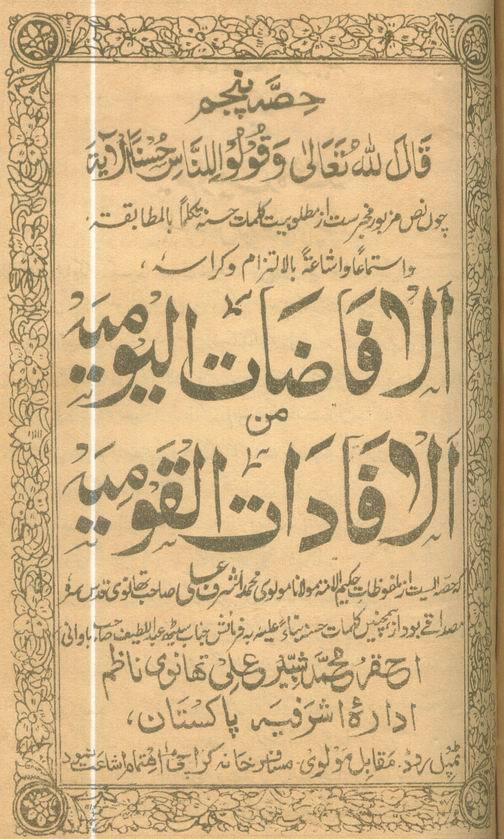 حصّہ پنجم
قال الله تعالیٰ وقولوا للناس حسنا الآیة
چون نص مزبور مخبر ست از مطلوبیت کلمات حسنہ تکلماً بالمطابقة
واستماعاً واشاعةً بالالتزام وکراسہ،
الافاضات الیومیہ
من
الافادات القومیہ
کہ حصہ ایست از ملفوظات حکیم الامۃ مولانا مولوی محمد اشرف علی صاحب تھانوی قدس سرہ
مصداقے بود از ہمچنیں کلمات حسنہ بناءً علیہ بہ فرمائش جناب سیٹھ عبد اللطیف صاحب باوانی
احقر محمد شبیر علی تھانوی ناظم
ادارۂ اشرفیہ پاکستان،
ٹمپل روڈ۔ مقابل مولوی مسافر خانہ کراچی اہتمام اشاعت نمود